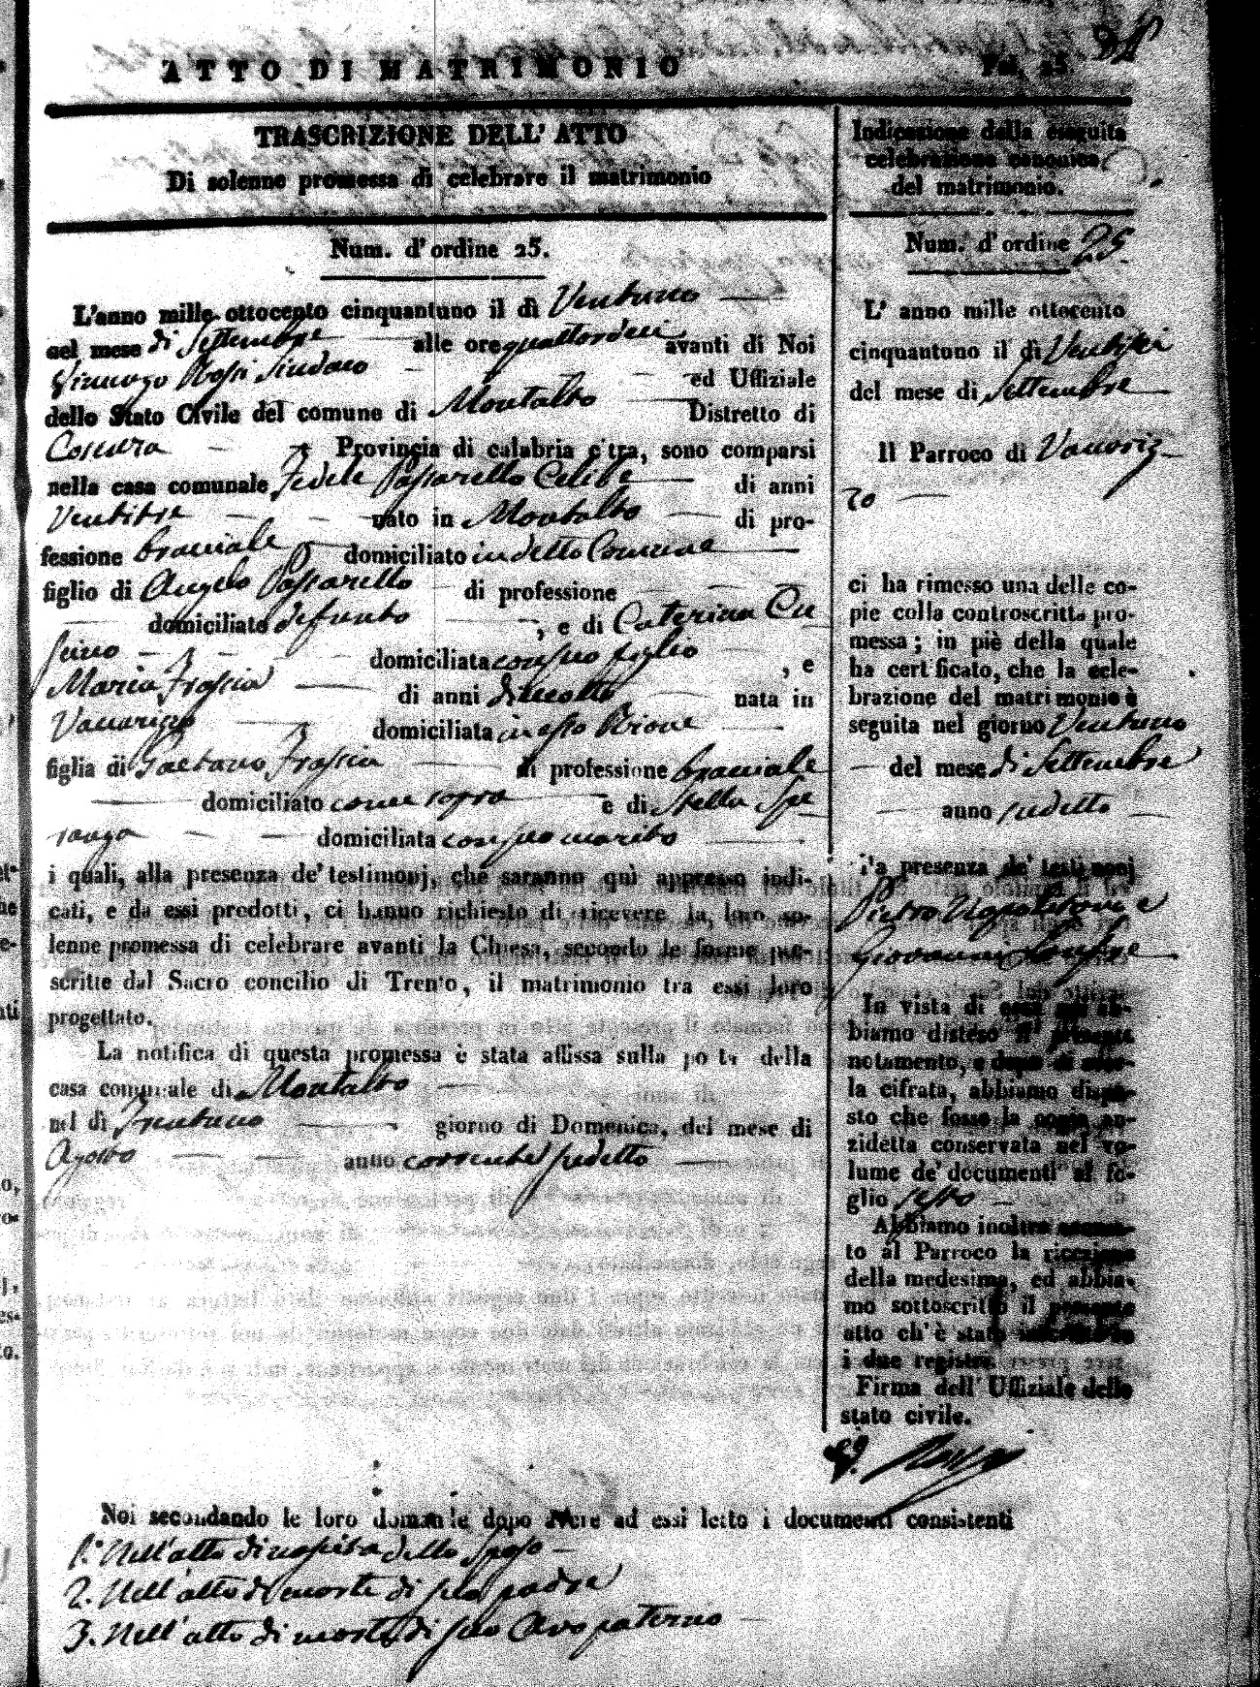 ATTO DI MATRIMONIO
TRASCRIZIONE DELL' ATTO
Di solenne promessa di celebrare il matrimonio
Num. d'ordine 25.
L'anno mille ottocento cinquantuno il dì Ventuno
nel mese di Settembre alle ore quattordeci avanti di Noi
Rossi Sindaco ed Uffiziale
dello Stato Civile del comune di Montalto Distretto di
Cosenza Provincia di calabria citra, sono comparsi
nella casa comunale Fedele Passarello Celibe di anni
Ventitre nato in Montalto di pro-
fessione bracciale domiciliato in detto Comune
figlio di Angelo Passarello di professione
domiciliato defunto, e di Caterina Cu
scino domiciliata con suo figlio, e
Maria Froscia di anni diciotto nata in
Vaccarizzo domiciliata in esso Rione
figlia di Gaetano Froscia di professione bracciale
domiciliato come sopra e di Stella Spe
ranza domiciliata con suo marito
i quali, alla presenza de' testimonj, che saranno quì appresso indi-
cati, e da essi prodotti, ci hanno richiesto di ricevere la loro so-
lenne promessa di celebrare avanti la Chiesa, secondo le forme pre-
scritte dal Sacro concilio di Trento, il matrimonio tra essi loro
progettato.
La notifica di questa promessa è stata affissa sulla porta della
casa comunale di Montalto
nel dì Trentuno giorno di Domenica, del mese di
Agosto anno corrente sudetto
Indicazione della eseguita
celebrazione canonica,
del matrimonio.
Num. d'ordine 25
L' anno mille ottocento
cinquantuno il dì Ventisei
del mese di Settembre
Il Parroco di Vaccariz-
zo
ci ha rimesso una delle co-
pie colla controscritta pro-
messa; in piè della quale
ha certificato, che la cele-
brazione del matrimonio è
seguita nel giorno Ventuno
del mese di Settembre
anno sudetto
la presenza de' testimonj
Pietro Napolitano e
Giovanni
In vista di essa ab-
biamo disteso il presente
notamento, e dopo di aver-
la cifrata, abbiamo dispo-
sto che fosse la copia an-
zidetta conservata nel vo-
lume de' documenti al fo-
glio sesto
Abbiamo inoltre accusa-
to al Parroco la ricezione
della medesima, ed abbia-
mo sottoscritto il presente
atto ch'è stato inscritto in
i due registri
Firma dell' Uffiziale dello
stato civile.
Rossi
Noi secondando le loro domande dopo avere ad essi letto i documenti consistenti
1.° Nell'atto di nascita dello Sposo
2. Nell'atto di morte di suo padre
3. Nell'atto di morte di suo Avo paterno